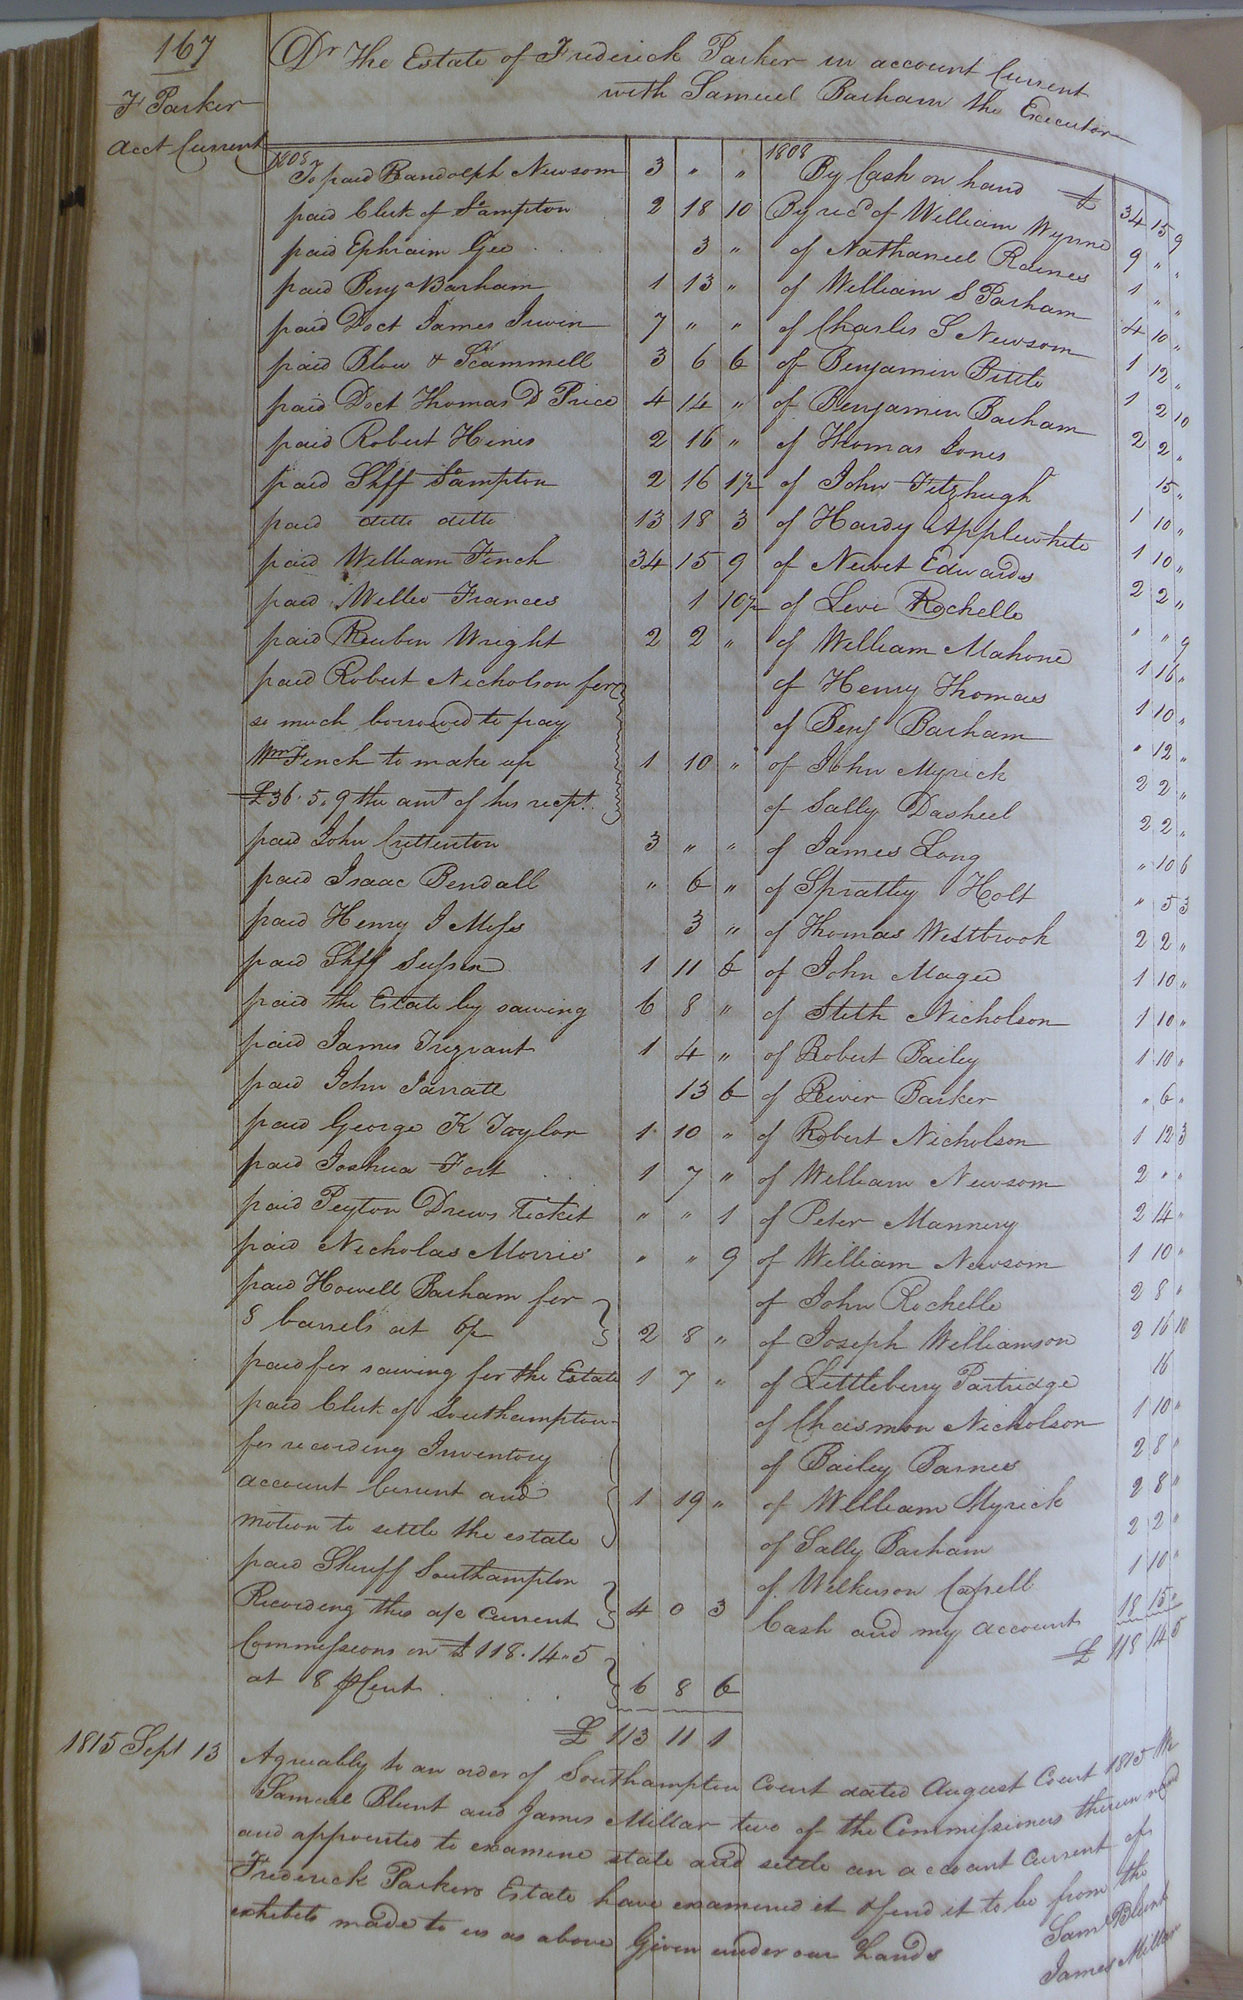 167
F Parker
Acct Current
Dr The Estate of Frederick Parker in account Current
with Samuel Barham the Executor
1808
To paid Randolph Newsom 3 " "
paid Clerk of S°ampton 2 18 10
paid Ephraim Gee 3 "
paid Benja Barham 1 13 "
paid Doct James Irwin 7 " "
paid Blow & Scammell 3 6 6
paid Doct Thomas D Price 4 14 "
paid Robert Hines 2 16 "
paid Shff S°ampton 2 16 1½
paid ditto ditto 13 18 3
paid William Finch 34 15 9
paid Frances 1 10½
paid Reuben Wright 2 2 "
paid Robert Nicholson for
so much borrowed to pay
Wm Finch to make up 1 10 "
£36.5.9 the amt of his rect.
paid John Crittenton 3 " "
paid Isaac Bendall " 6 "
paid Henry J Moss 3 "
paid Shff Sussex 1 11 6
paid the Estate by sawing 6 8 "
paid James Trezvant 1 4 "
paid John Jarratt 13 6
paid George K Taylor 1 10 "
paid Joshua Fort 1 7 "
paid Peyton Drews Ticket " " 1
paid Nicholas Morris " " 9
paid Howell Barham for
8 barrels at 6/ 2 8 "
paid for sawing for the Estate 1 7 "
paid Clerk of Southampton
for recording Inventory
account Current and 1 19 "
motion to settle the estate
paid Sheriff Southampton
Recording this a/c Current 4 0 3
Commissions on £118.14.5
at 8 ⅌Cent 6 8 6
£ 113 11 1
1808
By Cash on hand £ 34 15 9
By recd of William Wynne 9 " "
of Nathaniel Raines 1 " "
of William S Parham 4 10 "
of Charles S Newsom 1 12 "
of Benjamin Bittle 1 2 10
of Benjamin Barham 2 2 "
of Thomas Jones 15 "
of John Fitzhugh 1 10 "
of Hardy Applewhite 1 10 "
of Newit Edwards 2 2 "
of Levi Rochelle " " 9
of William Mahone 1 16 "
of Henry Thomas 1 10 "
of Benj Barham " 12 "
of John Myrick 2 2 "
of Sally Dashiel 2 2 "
of James Long " 10 6
of Spratley Holt " 5 3
of Thomas Westbrook 2 2 "
of John Magee 1 10 "
of Stith Nicholson 1 10 "
of Robert Bailey 1 10 "
of River Barker " 6 "
of Robert Nicholson 1 12 3
of William Newsom 2 " "
of Peter Mannery 2 14 "
of William Newsom 1 10 "
of John Rochelle 2 8 "
of Joseph Williamson 2 16 10
of Littleberry Partridge 16
of Chasmon Nicholson 1 10 "
of Bailey Barnes 2 8 "
of William Myrick 2 8 "
of Sally Barham 2 2 "
of Wilkerson Capell 1 10 "
Cash and my account 18 15 "
£ 118 14 5
1815 Sept 13
Agreeably to an order of Southampton Court dated August Court 1815 We
Samuel Blunt and James Millar two of the Commissioners therein named
and appointed to examine state and settle an account Current of
Frederick Parkers Estate have examined it & find it to be from the
exhibits made to us as above Given under our hands
Saml Blunt
James Millar